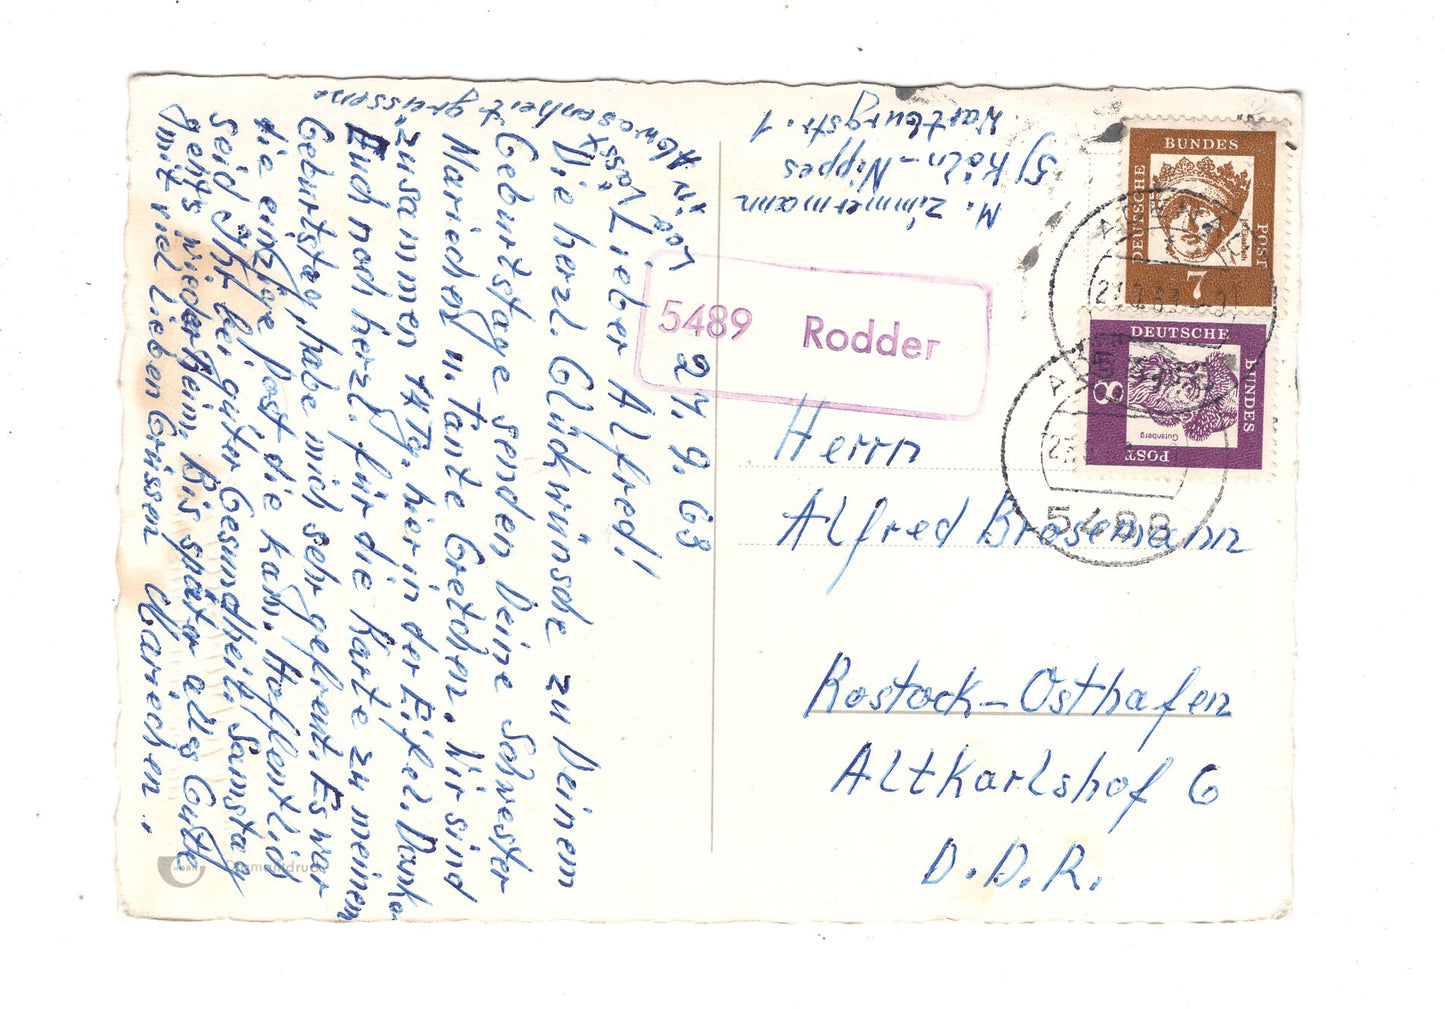 21. 9. 63
Lieber Alfred!
Die herzl. Glückwünsche zu Deinem
Geburtstage senden Deine Schwester
Mariechen u. Tante Gretchen. Wir sind
zusammen 14 Tg. hier in der Eifel. Danke
Euch noch herzl. für die Karte zu meinem
Geburtstag, habe mich sehr gefreut. Es war
die einzige Post die kam. Hoffentlich
seid Ihr bei guter Gesundheit. Samstag
geht's wieder heim. Bis später alles Gute
mit viel lieben Grüssen Mariechen.
lässt
in Abwesenheit grüssen.
M. Zimmermann
5) Köln-Nippes
Wartburgstr. 1
5489 Rodder
Herrn
Alfred Brosemann
Rostock-Osthafen
Altkarlshof 6
D.D.R.
DEUTSCHE BUNDES POST
7
DEUTSCHE BUNDES POST
8
Gutenberg
5488
HORN
Diamantdruck